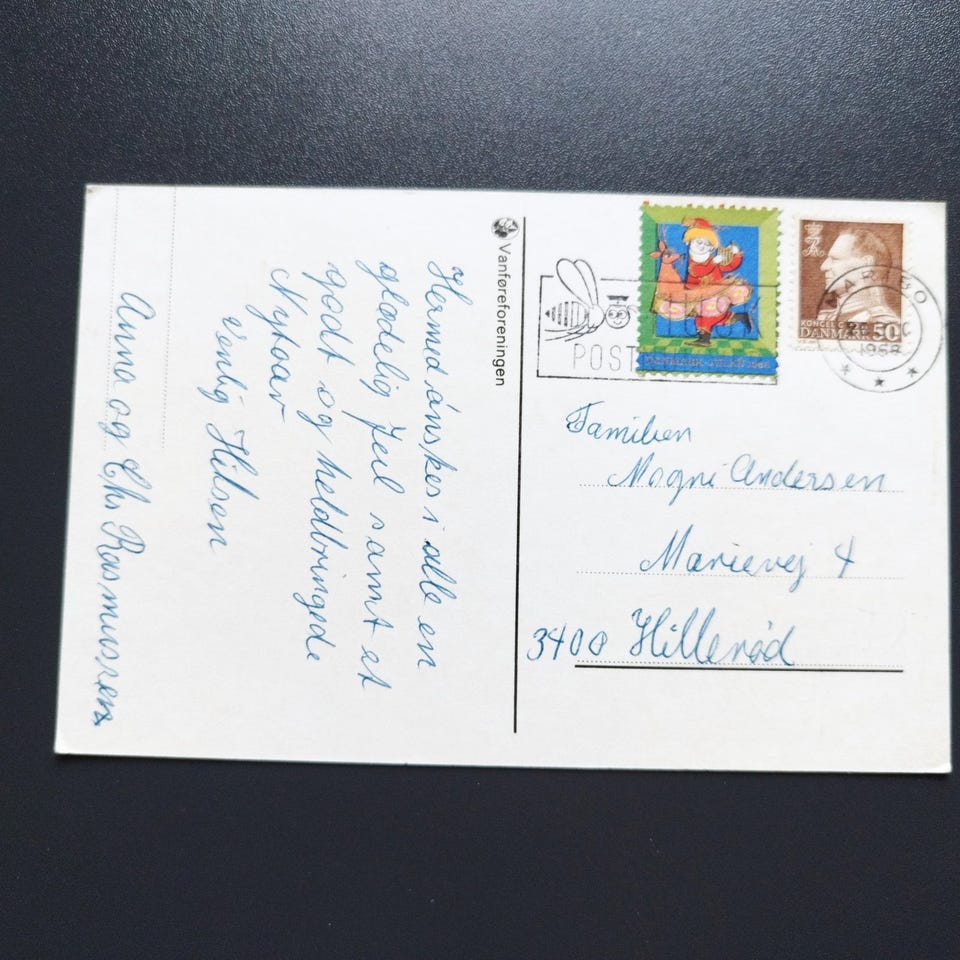 Hermed ønskes i alle en
glædelig Jul samt et
godt og heldbringede
Nytaar
Venlig Hilsen
Anna og Chr Rasmussen
Vanføreforeningen
POST
DANMARK 50
MARIBO
1968
Familien
Mogni Andersen
Marievej 4
3400 Hillerød